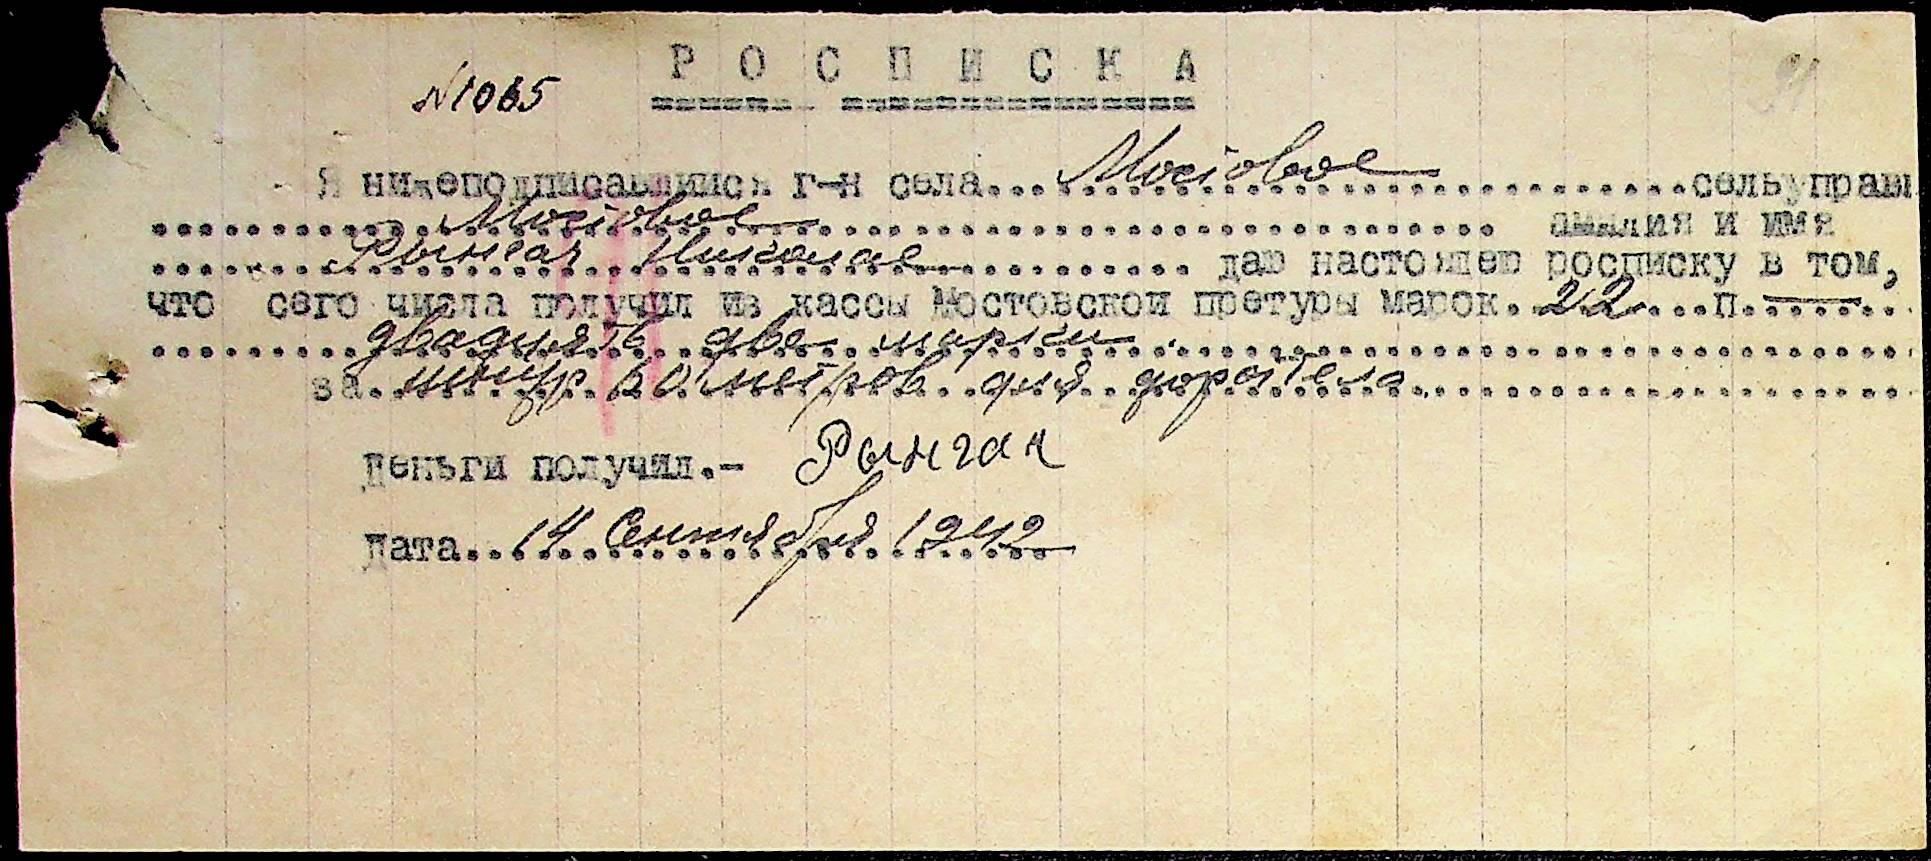 РОСПИСКА
№1065
Я нижеподписавшийся г-н села... Мостовое ...сельуправ
... Мостовое ... амилия и имя
... Рынгач Николае ... даю настоящею росписку в том,
что сего числа получил из кассы Мостовской претуры марок. 22...п.—
... двадцять две марки ...
за. шнур 60 метров для
Деньги получил.- Рынгач
Дата.. 14 Сентября 1942